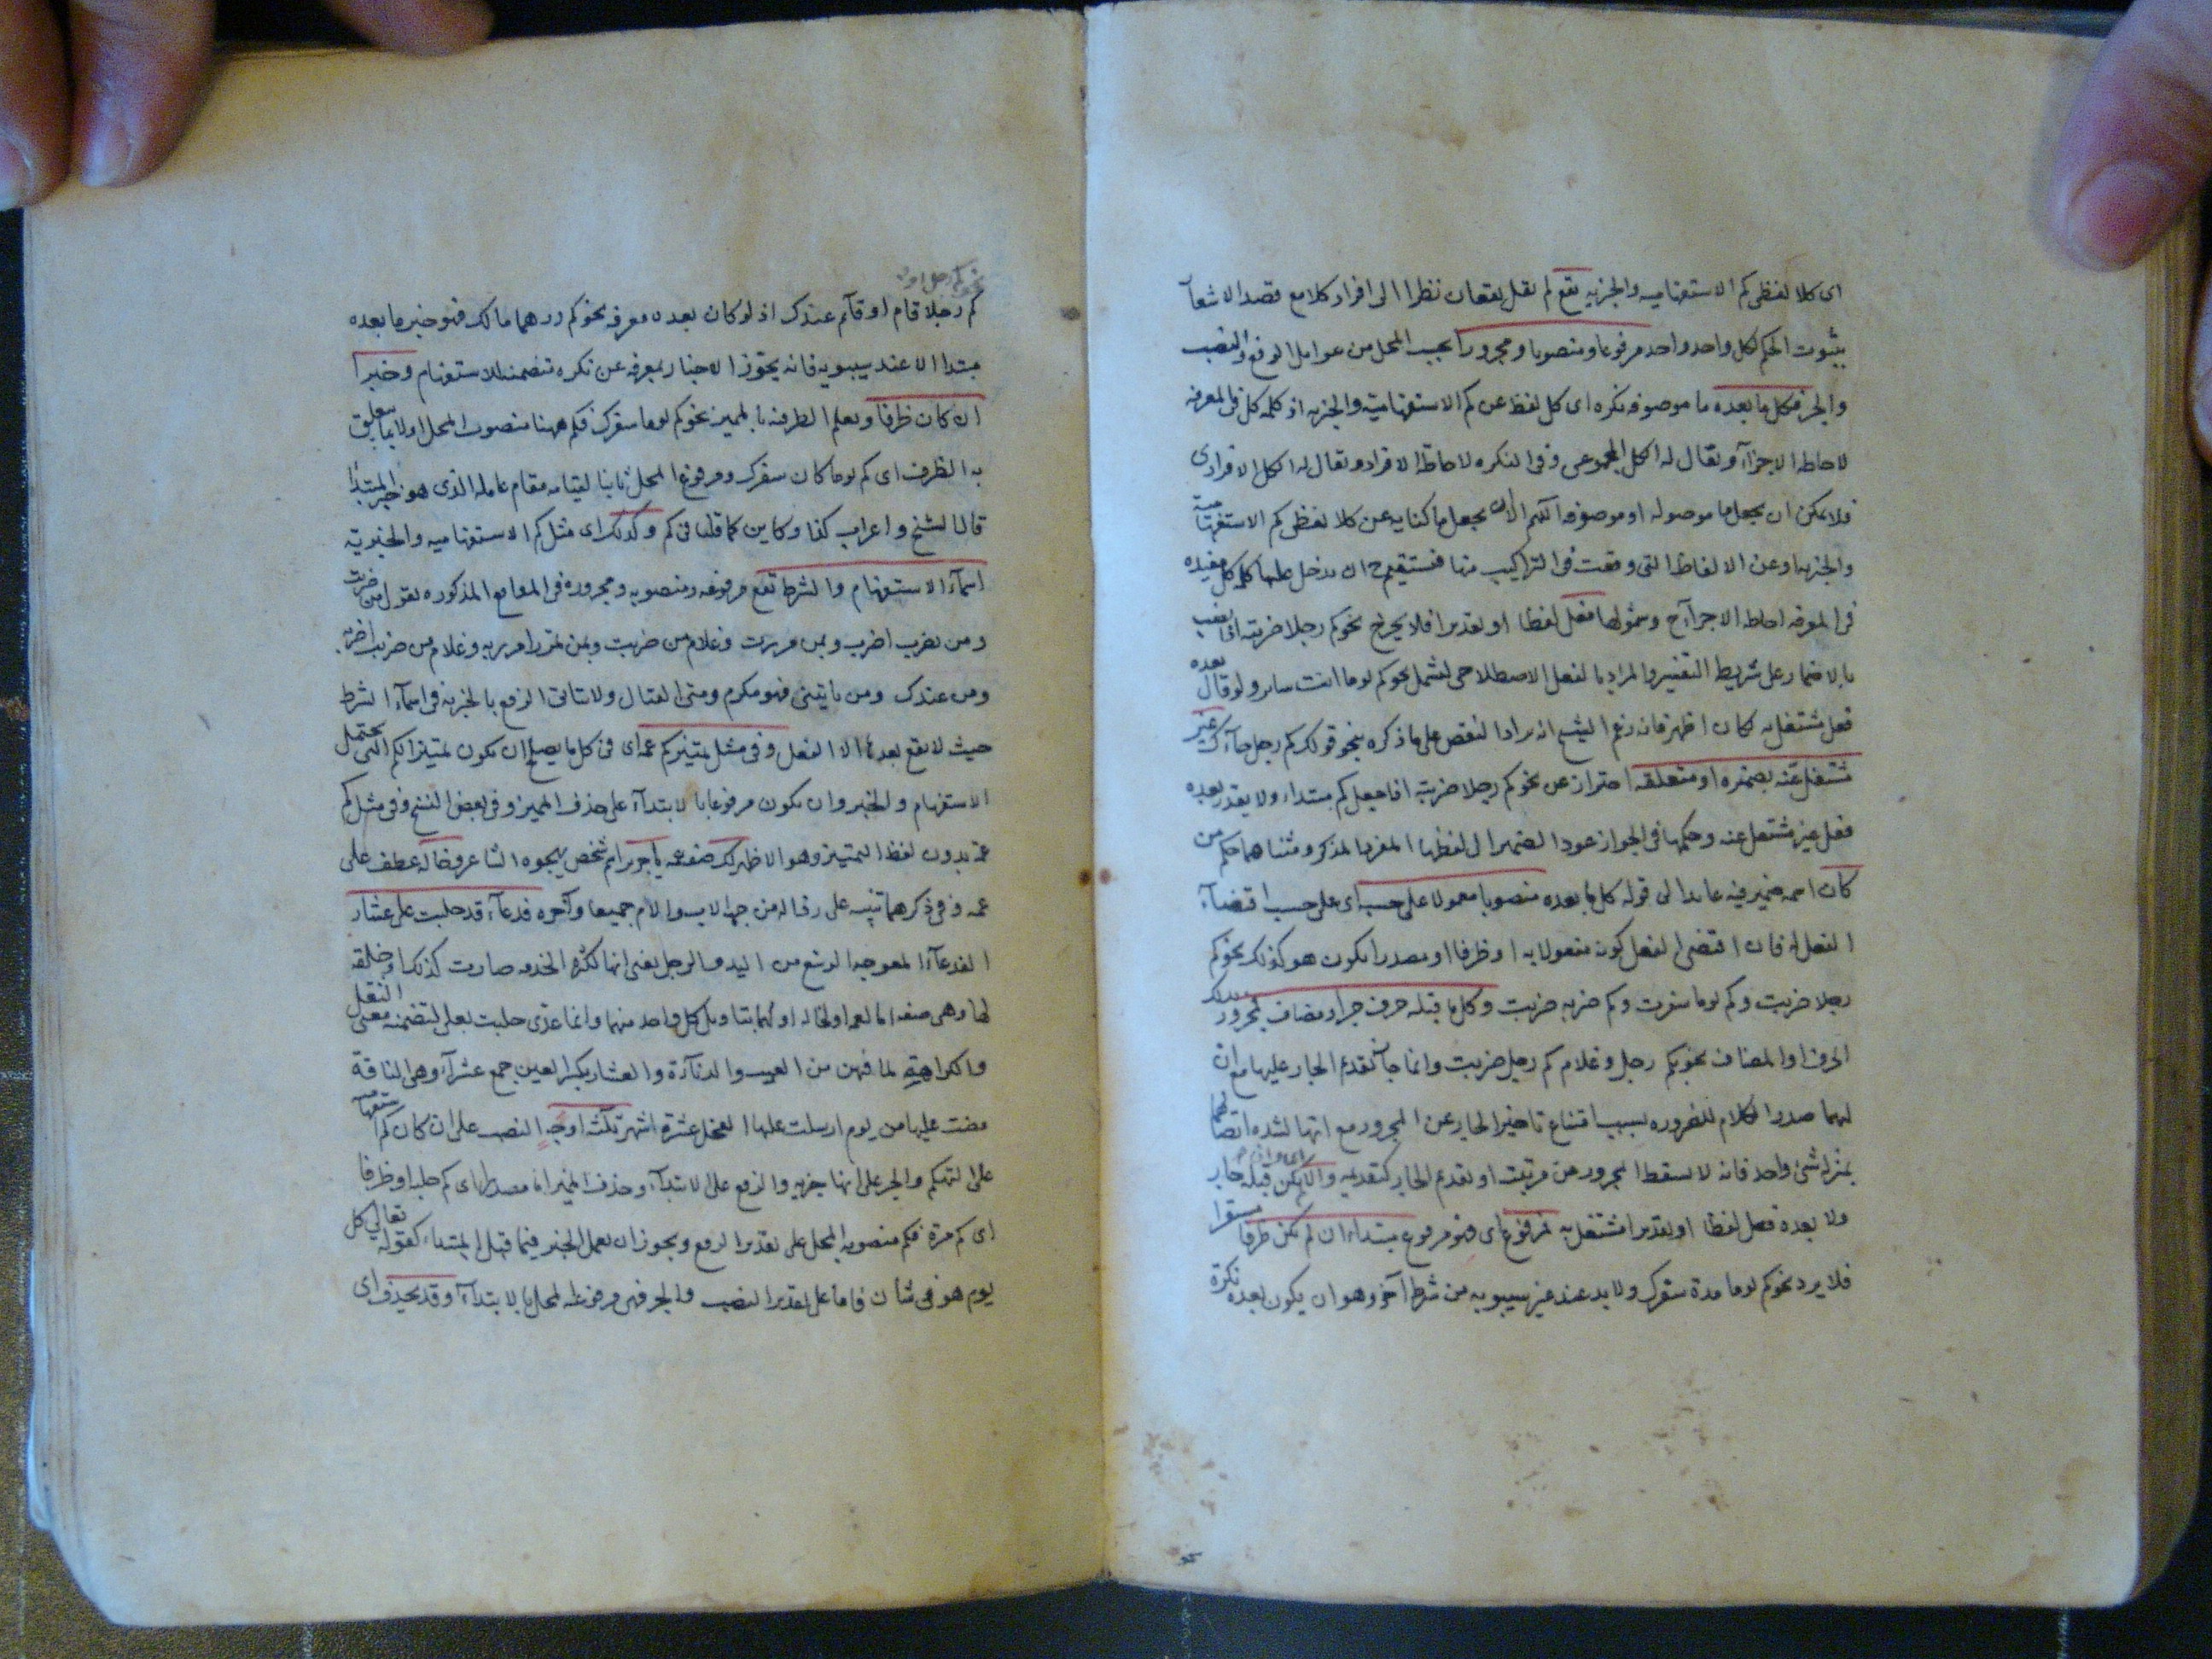 اى كلا لفظى كم الاستفهاميه والخبريه يقع لم يقل يقعان نظرا الى افراد كلا مع قصد الاشعآ
بثبوت الحكم لكل واحد واحد مرفوعا ومنصوبا ومجرورا بحسب المحل من عوامل الرفع والنصب
والجر فكل ما بعده ما موصوفه نكره اى كل لفظ عن كم الاستفهاميه والخبريه اذ كلمه كل فى المعرفه
لاحاطه الاجزآء ويقال له الكل المجموعى وفى النكره لاحاطة الافراد ويقال له الكل الافرادى
فلا يمكن ان يجعل ما موصوله او موصوفه اللهم الا ان يجعل ما كنايه عن كلا لفظى كم الاستفهاميه
والخبريه وعن الالفاظ التى وقعت فى التراكيب منها فيستقيم ح ان يدخل عليها كلمه كل مفيده
فى المعرفه احاطه الاجزآء ح وشمولها فعل لفظا او تقديرا فلا يخرج نحو كم رجلا ضربته اذا نصب
بالاضمار على شريطه التفسير والمراد بالفعل الاصطلاحى ليشمل نحو كم يوما انت ساير ولو قال بعده
فعل مشتغل به لكان اظهر فانه زعم الشيخ انه يراد النقض على ما ذكره بنحو قولك كم رجل جاءك غير
مشتغل عنه بضميره او متعلقه احتراز عن نحو كم رجلا ضربته اذا جعل كم مبتداء ولا يقدر بعده
فعل غير مشتغل عنه وحكمها فى الجواز عود الضمير الى لفظها المفرد المذكر ومعناهما حكم من
كان اسمه ضمير فيه عايد الى قوله كل ما بعده منصوبا معمولا على حسبه اى على حسب اقتضآء
الفعل له فان اقتضى الفعل كونه مفعولا به او ظرفا او مصدرا يكون هو كذلك نحو كم
رجلا ضربت وكم يوما سفرت وكم ضربه ضربت وكل ما قبله حرف جر او مضاف فمجرور بذلك
الحرف او المضاف نحو بكم رجل وغلام كم رجل ضربت وانما جاز تقدم الجار عليها مع ان
لهما صدر الكلام للضروره بسبب امتناع تاخير الجار عن المجرور مع انها لشده اتصالهما
بمنزله شئ واحد فانه لا يسقط المجرور من مرتبته او تقدم الجار كتقديمه والا اى وان لم يكن قبله جار
ولا بعده فعل لفظا او تقديرا مشتغل به فمرفوع اى فهو مرفوع مبتداء ان لم يكن ظرفا مستقرا
فلا يرد نحو كم يوما مدة سفرك ولا بد عند غير سيبويه من شرط آخر وهو ان يكون بعده نكرة
نحو كم رجل او
كم رجلا قام او قآئم عندك اذ لو كان بعده معرفه نحو كم درهما مالك فهو خبر ما بعده
مبتدا الا عند سيبويه فانه يجوز الاخبار بمعرفه عن نكره متضمنه للاستفهام وخبرا
ان كان ظرفا ويعلم الظرفيه بالمميز نحو كم يوما سفرك فكم ههنا منصوب المحل اولا بما يتعلق
به الظرف اى كم يوما كان سفرك ومرفوع المحل ثانيا لقيامه مقام عامله الذى هو خبر المبتدا
قال الشيخ واعراب كذا وكاين كما قلنا فى كم وكذلك اى مثل كم الاستفهاميه والخبريه
اسمآء الاستفهام والشرط تقع مرفوعه ومنصوبه ومجروره فى المواضع المذكوره تقول من ضربت
ومن تضرب اضرب وبمن مررت وغلام من ضربت وبمن تمرر امرر به وغلام من ضربت اضربه
ومن عندك ومن ياتينى فهو مكرم ومتى القتال ولا يتاتى الرفع بالخبريه فى اسمآء الشرط
حيث لا يقع بعدها الا الفعل وفى مثل تمييز كم عمه اى فى كل ما يصلح ان يكون تمييزا لكم التى يحتمل
الاستفهام والخبر وان يكون مرفوعا بالابتدآء على حذف المميز وفى بعض النسخ وفى مثل كم
عمة بدون لفظ التمييز وهو الاظهر لك صفه عمه يا جرير اسم شخص يهجوه الشاعر وخاله عطف على
عمه وفى ذكرهما تنبيه على رذاله من جهه الاب والام جميعا وآخره فدعآء قد حلبت على عشارى
الفدعآء المعوجه الرسغ من اليد والرجل يعنى انها لكثره الخدمه صارت كذلك او خلقه
لها وهى صفه اما لعمه او لخاله او لهما بتاويل كل واحد منهما وانما عدى حلبت بعلى لتضمنه معنى الثقل
والكراهة لما فيهن من العيب والدنآءة والعشار بكسر العين جمع عشرآء وهى الناقة
مضت عليها من يوم ارسلت عليها الفحل عشرة اشهر ثلثه اوجه النصب على ان كان كم استفهاميه
على التهكم والجر على انها خبريه والرفع على الابتدآء وحذف المميز اما مصدرا اى كم حلبه او ظرفا
اى كم مرة فكم منصوبه المحل على تقدير الرفع ويجوز ان يعمل الخبر فيما قبل المبتداء كقوله تعالى كل
يوم هو فى شأن فاما على تقدير النصب والجر فهى مرفوعه المحل بالابتدآء وقد يحذف اى